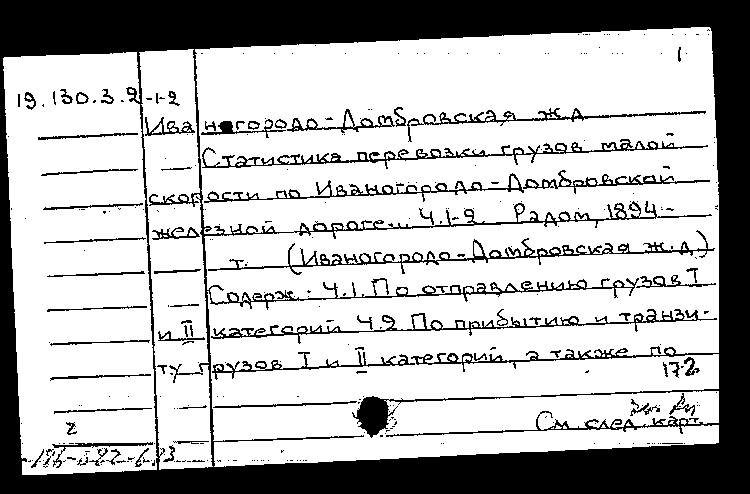 1
19.130.3.2-1-2
Иваногородо-Домбровская ж.д.
Статистика перевозки грузов малой
скорости по Иваногородо-Домбровской
железной дороге... Ч.1-2. Радом, 1894-
т. (Иваногородо-Домбровская ж.д.)
Содерж.: Ч.1. По отправлению грузов I
и II категорий Ч.2. По прибытию и транзи-
ту грузов I и II категорий, а также по
172
См. след. карт.
2